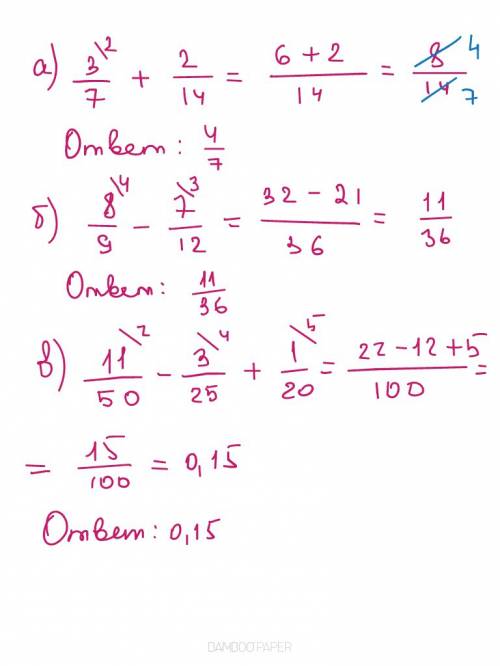 а) 3\2/7 + 2/14 = 6 + 2/14 = 8 4/14 7
Ответ: 4/7
б) 8\4/9 - 7\3/12 = 32 - 21/36 = 11/36
Ответ: 11/36
в) 11\2/50 - 3\4/25 + 1\5/20 = 22 - 12 + 5/100 =
= 15/100 = 0,15
Ответ: 0,15
BAMBOO PAPER